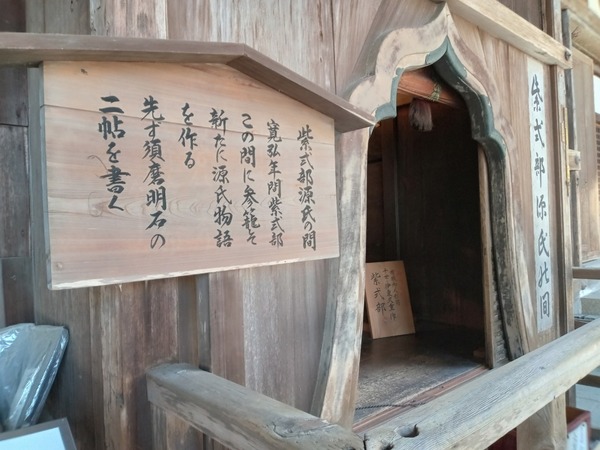 紫式部源氏の間
寛弘年間紫式部
この間に参籠そ
新たに源氏物語
を作る
先ず須磨明石の
二帖を書く
紫式部源氏の間
紫式部